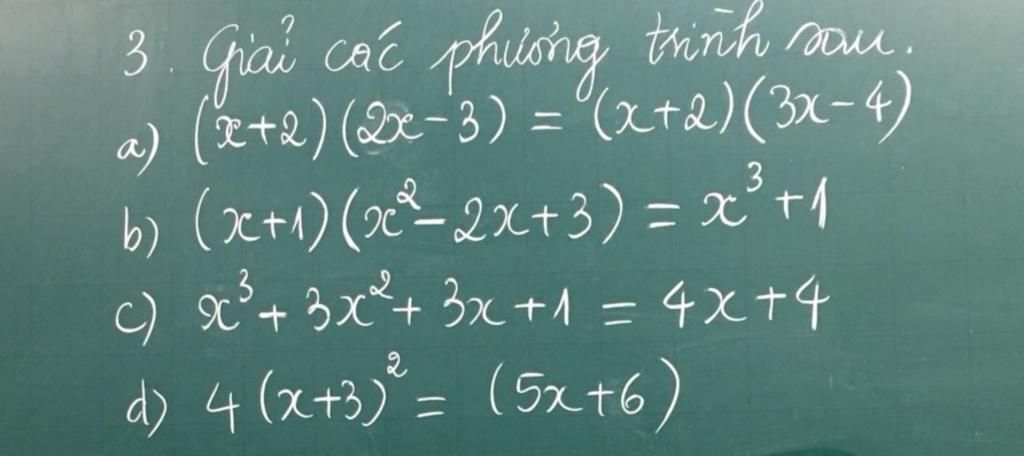 3. Giải các phương trình sau.
a) (x+2)(2x-3) = (x+2)(3x-4)
b) (x+1)(x²-2x+3) = x³+1
c) x³+3x²+3x+1 = 4x+4
d) 4(x+3)² = (5x+6)